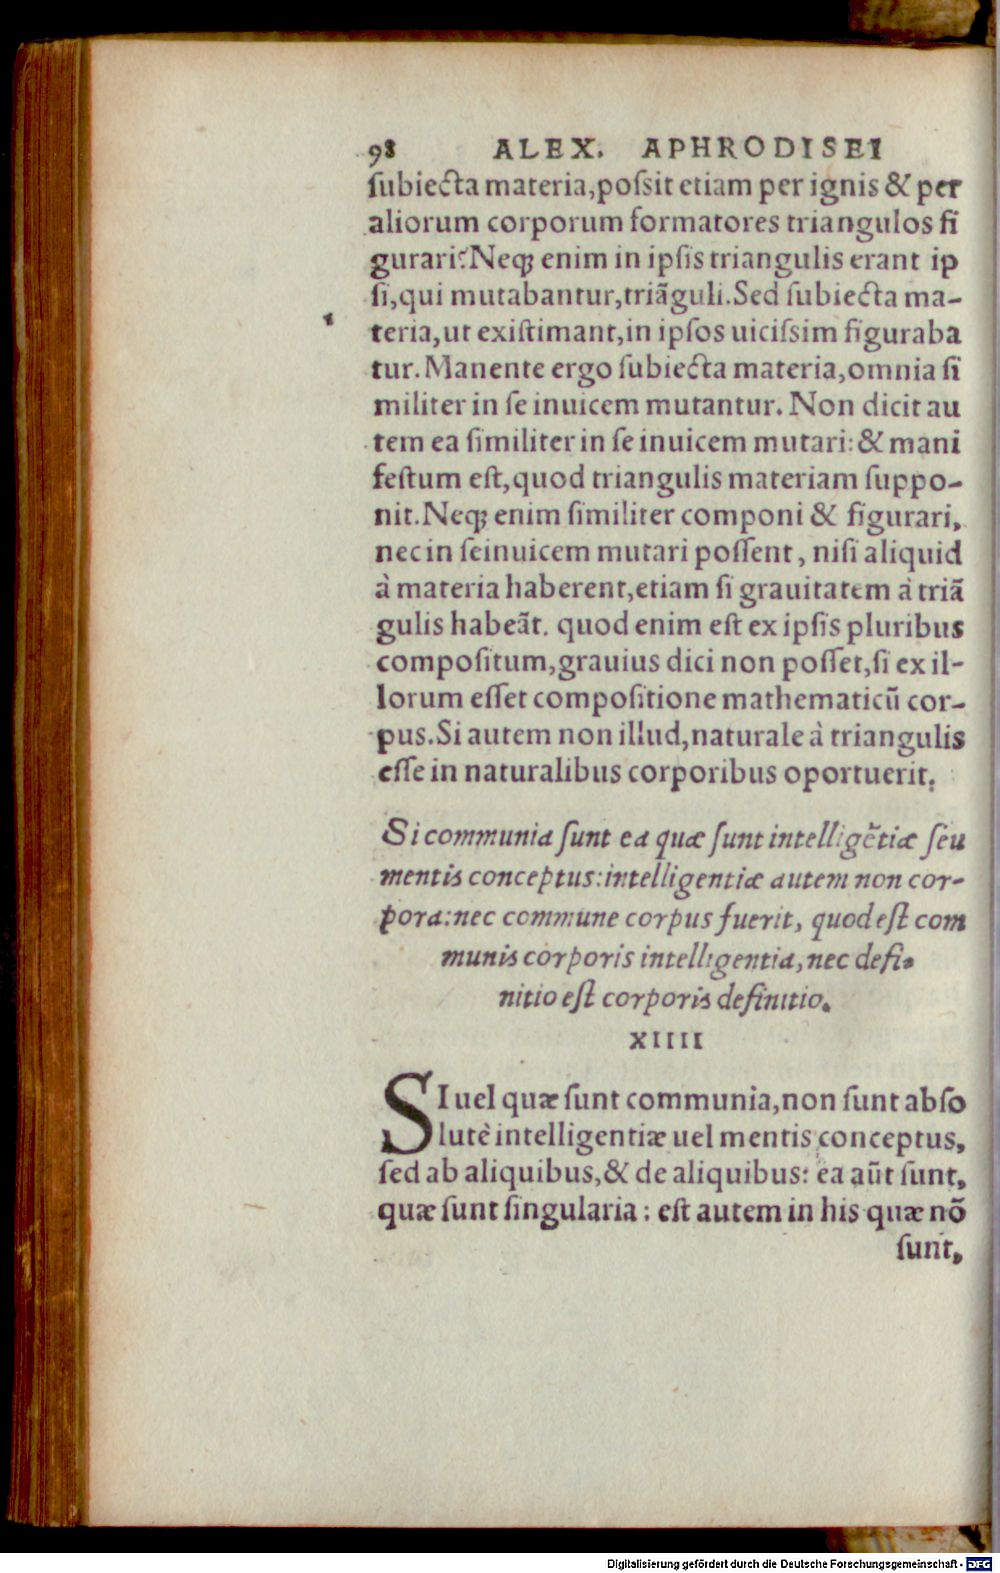 98 ALEX. APHRODISEI
subiecta materia,possit etiam per ignis & per
aliorum corporum formatores triangulos fi
gurari? Neq; enim in ipsis triangulis erant ip
si,qui mutabantur,triãguli.Sed subiecta ma-
teria,ut existimant,in ipsos uicissim figuraba
tur. Manente ergo subiecta materia,omnia si
militer in se inuicem mutantur. Non dicit au
tem ea similiter in se inuicem mutari: & mani
festum est,quod triangulis materiam suppo-
nit.Neq; enim similiter componi & figurari,
nec in seinuicem mutari possent, nisi aliquid
à materia haberent,etiam si grauitatem à triã
gulis habeãt. quod enim est ex ipsis pluribus
compositum,grauius dici non posset,si ex il-
lorum esset compositione mathematicũ cor-
pus.Si autem non illud,naturale à triangulis
esse in naturalibus corporibus oportuerit.
Si communia sunt ea quæ sunt intelligẽtiæ seu
mentis conceptus:intelligentiæ autem non cor-
pora:nec commune corpus fuerit, quod est com
munis corporis intelligentia,nec defi-
nitio est corporis definitio.
XIIII
SI uel quæ sunt communia,non sunt abso
lutè intelligentiæ uel mentis conceptus,
sed ab aliquibus,& de aliquibus: ea aũt sunt,
quæ sunt singularia: est autem in his quæ nõ
sunt,
Digitalisierung gefördert durch die Deutsche Forschungsgemeinschaft - DFG